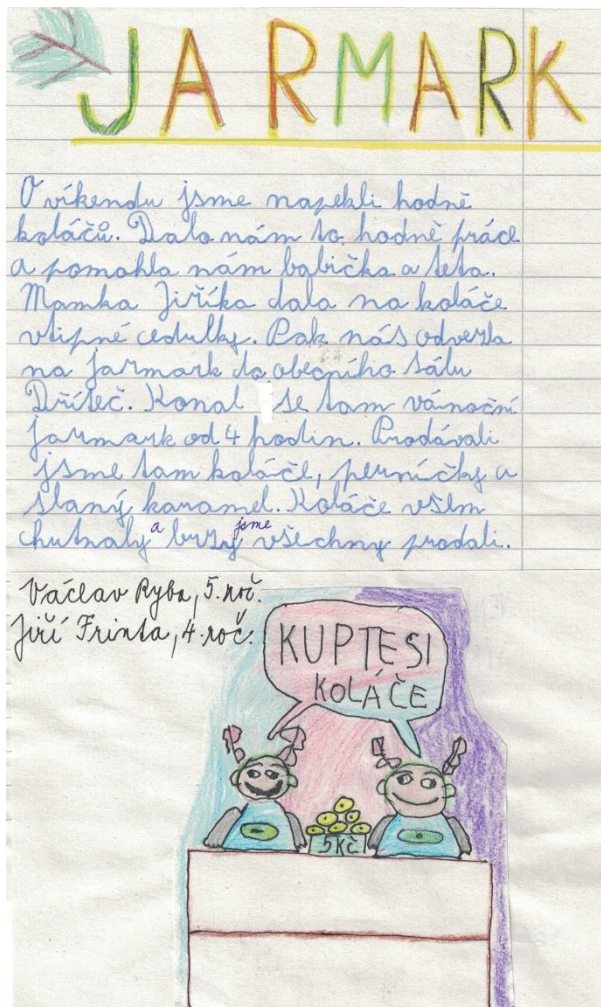 JARMARK
O víkendu jsme napekli hodně
koláčů. Dalo nám to hodně práce
a pomohla nám babička a teta.
Mamka Jiříka dala na koláče
vtipné cedulky. Pak nás odvezla
na jarmark do obecního sálu
Dříteč. Konal se tam vánoční
jarmark od 4 hodin. Prodávali
jsme tam koláče, perníčky a
slaný karamel. Koláče všem
chutnaly a brzy jsme všechny prodali.
Václav Ryba, 5. roč.
Jiří Frinta, 4. roč.
KUPTESI
KOLÁČE
5 KČ